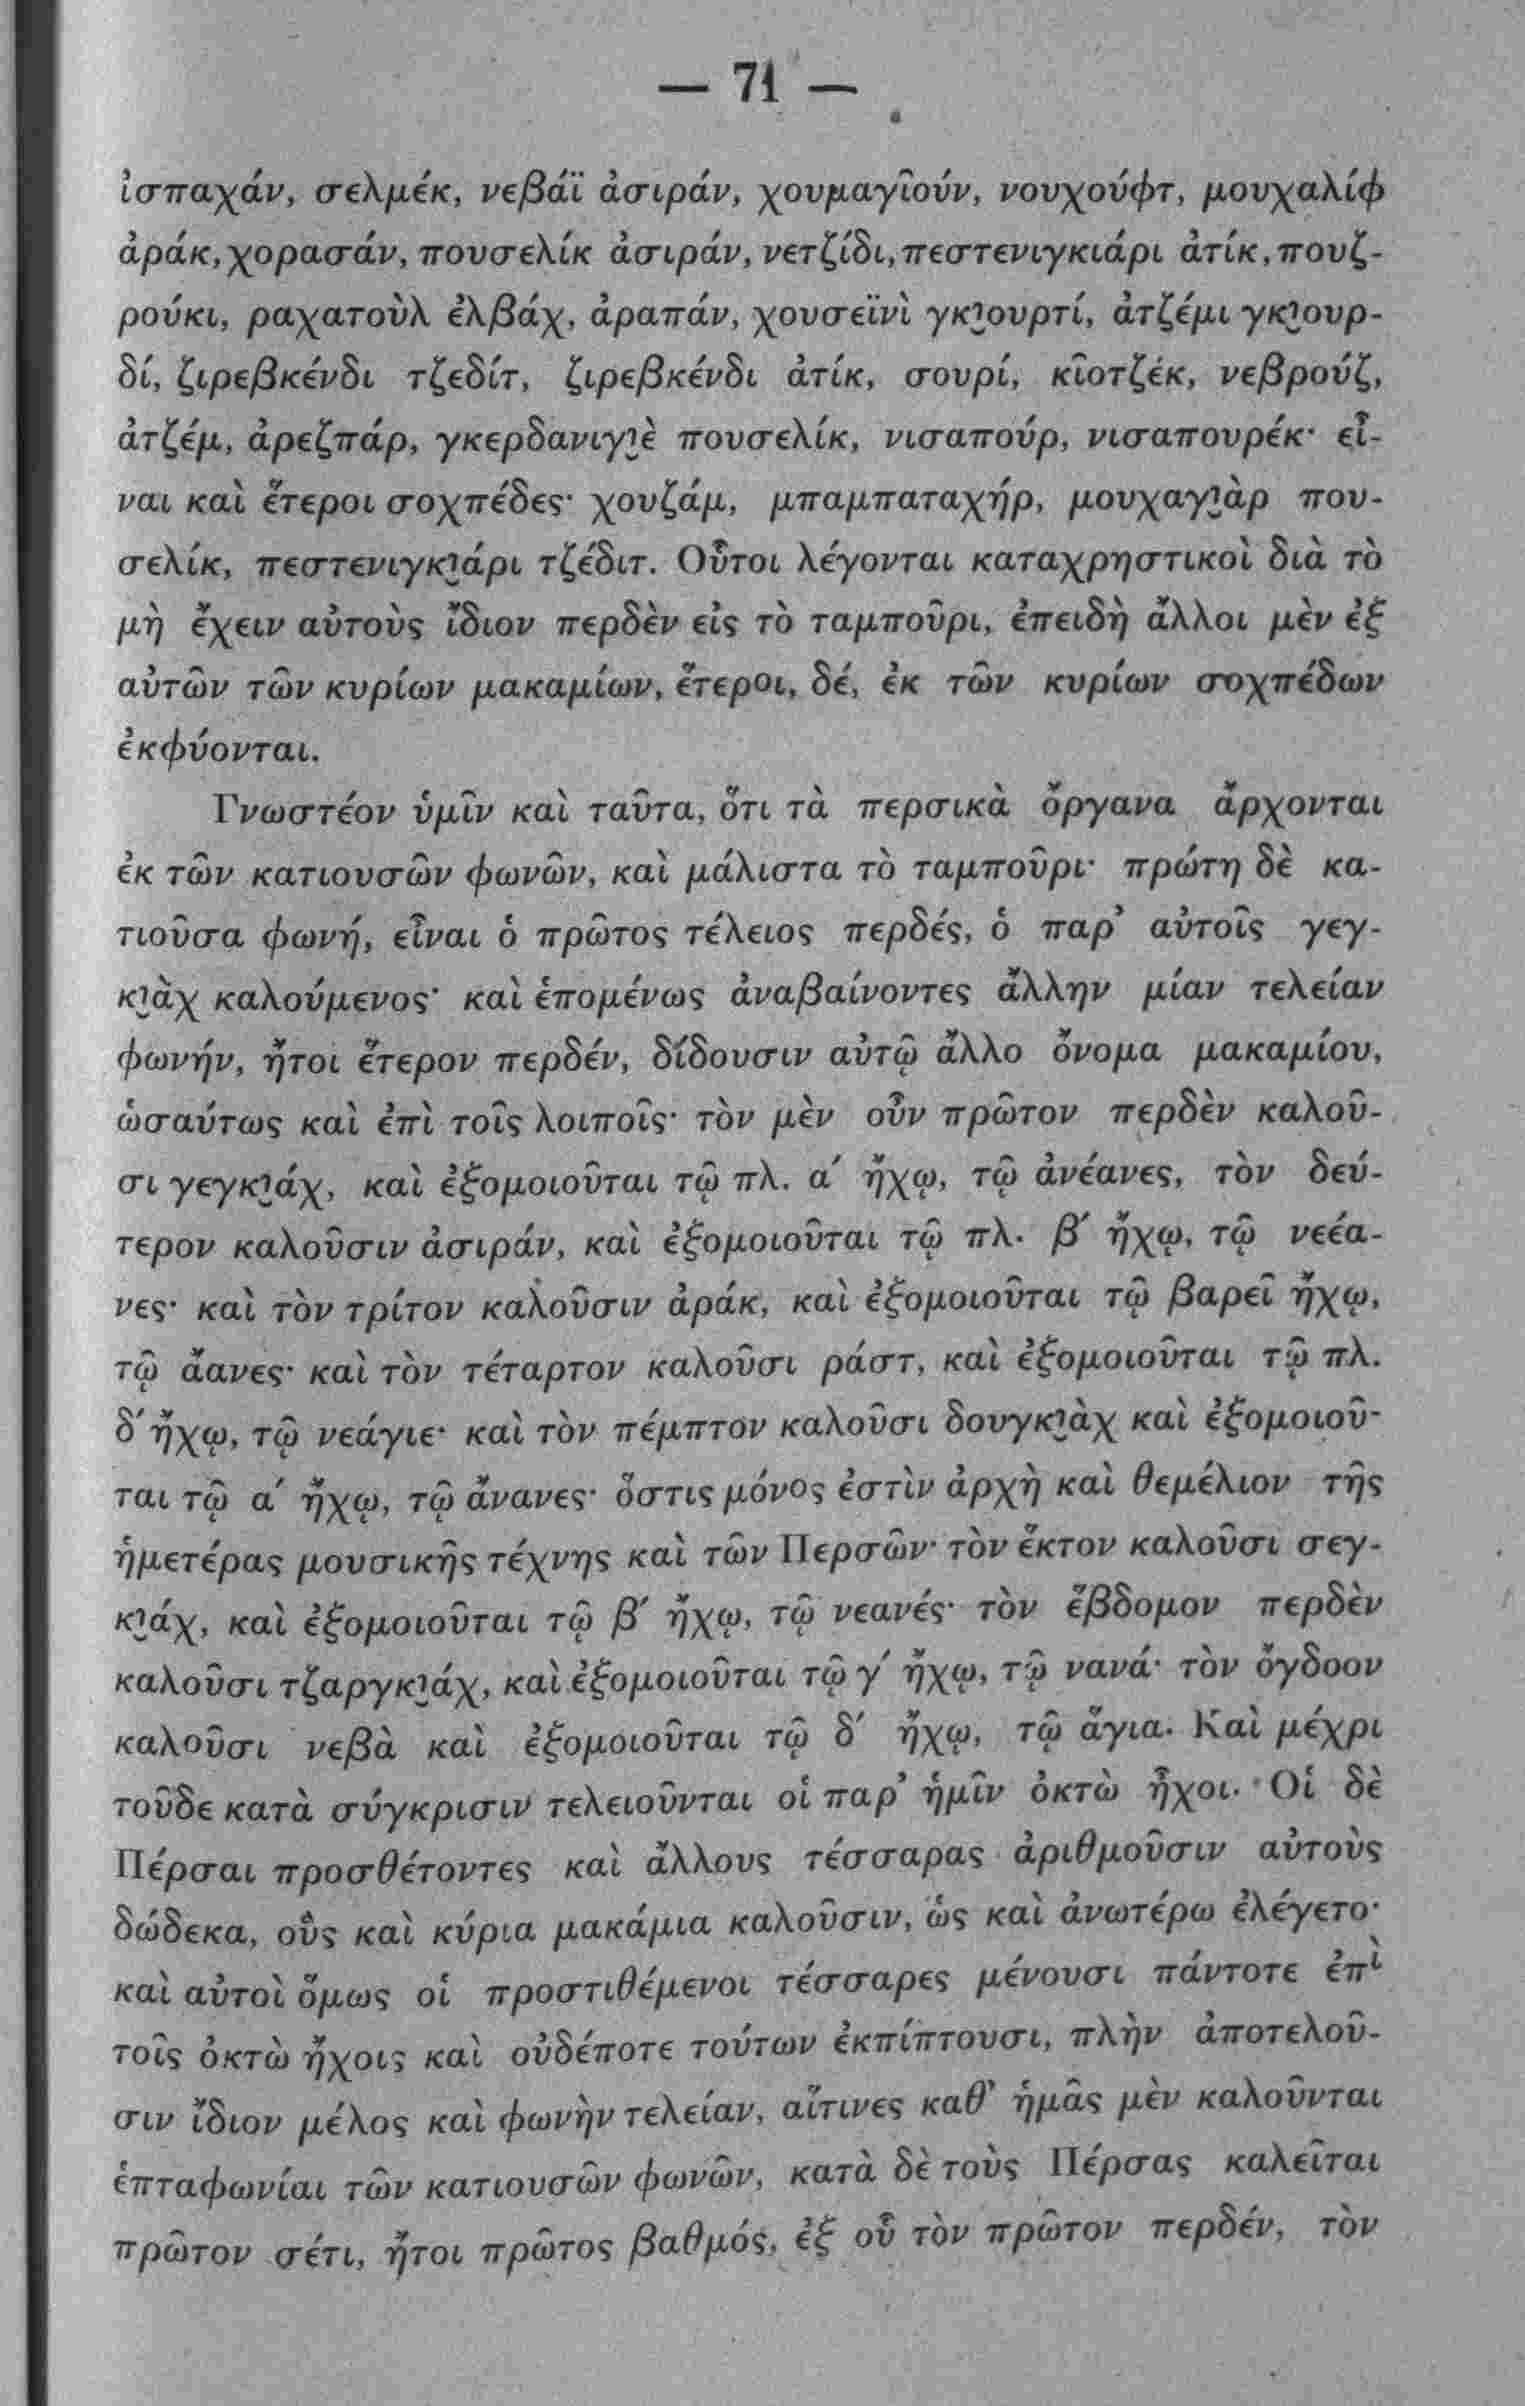 — 71 —
ἰσπαχάν, σελμέκ, νεβάϊ ἀσιράν, χουμαγῖούν, νουχούφτ, μουχαλίφ
ἀράκ, χορασάν, πουσελίκ ἀσιράν, νετζίδι, πεστενιγκιάρι ἀτίκ, πουζ-
ρούκι, ραχατοὺλ ἐλβάχ, ἀραπάν, χουσεϊνὶ γκιουρτί, ἀτζέμι γκιουρ-
δί, ζιρεβκένδι τζεδίτ, ζιρεβκένδι ἀτίκ, σουρί, κῖοτζέκ, νεβρούζ,
ἀτζέμ, ἀρεζπάρ, γκερδανιγιὲ πουσελίκ, νισαπούρ, νισαπουρέκ· εἶ-
ναι καὶ ἕτεροι σοχπέδες· χουζάμ, μπαμπαταχήρ, μουχαγιὰρ που-
σελίκ, πεστενιγκιάρι τζέδιτ. Οὗτοι λέγονται καταχρηστικοὶ διὰ τὸ
μὴ ἔχειν αὐτοὺς ἴδιον περδὲν εἰς τὸ ταμποῦρι, ἐπειδὴ ἄλλοι μὲν ἐξ
αὐτῶν τῶν κυρίων μακαμίων, ἕτεροι, δέ, ἐκ τῶν κυρίων σοχπέδων
ἐκφύονται.
Γνωστέον ὑμῖν καὶ ταῦτα, ὅτι τὰ περσικὰ ὄργανα ἄρχονται
ἐκ τῶν κατιουσῶν φωνῶν, καὶ μάλιστα τὸ ταμποῦρι· πρώτη δὲ κα-
τιοῦσα φωνή, εἶναι ὁ πρῶτος τέλειος περδές, ὁ παρ' αὐτοῖς γεγ-
κιὰχ καλούμενος· καὶ ἑπομένως ἀναβαίνοντες ἄλλην μίαν τελείαν
φωνήν, ἤτοι ἕτερον περδέν, δίδουσιν αὐτῷ ἄλλο ὄνομα μακαμίου,
ὡσαύτως καὶ ἐπὶ τοῖς λοιποῖς· τὸν μὲν οὖν πρῶτον περδὲν καλοῦ-
σι γεγκιάχ, καὶ ἐξομοιοῦται τῷ πλ. α΄ ἤχῳ, τῷ ἀνέανες, τὸν δεύ-
τερον καλοῦσιν ἀσιράν, καὶ ἐξομοιοῦται τῷ πλ. β΄ ἤχῳ, τῷ νεέα-
νες· καὶ τὸν τρίτον καλοῦσιν ἀράκ, καὶ ἐξομοιοῦται τῷ βαρεῖ ἤχῳ,
τῷ ἄανες· καὶ τὸν τέταρτον καλοῦσι ράστ, καὶ ἐξομοιοῦται τῷ πλ.
δ΄ ἤχῳ, τῷ νεάγιε· καὶ τὸν πέμπτον καλοῦσι δουγκιὰχ καὶ ἐξομοιοῦ-
ται τῷ α΄ ἤχῳ, τῷ ἄνανες· ὅστις μόνος ἐστὶν ἀρχὴ καὶ θεμέλιον τῆς
ἡμετέρας μουσικῆς τέχνης καὶ τῶν Περσῶν· τὸν ἕκτον καλοῦσι σεγ-
κιάχ, καὶ ἐξομοιοῦται τῷ β΄ ἤχῳ, τῷ νεανές· τὸν ἕβδομον περδὲν
καλοῦσι τζαργκιάχ, καὶ ἐξομοιοῦται τῷ γ΄ ἤχῳ, τῷ νανά· τὸν ὄγδοον
καλοῦσι νεβὰ καὶ ἐξομοιοῦται τῷ δ΄ ἤχῳ, τῷ ἅγια. Καὶ μέχρι
τοῦδε κατὰ σύγκρισιν τελειοῦνται οἱ παρ' ἡμῖν ὀκτὼ ἦχοι. Οἱ δὲ
Πέρσαι προσθέτοντες καὶ ἄλλους τέσσαρας ἀριθμοῦσιν αὐτοὺς
δώδεκα, οὓς καὶ κύρια μακάμια καλοῦσιν, ὡς καὶ ἀνωτέρω ἐλέγετο·
καὶ αὐτοὶ ὅμως οἱ προστιθέμενοι τέσσαρες μένουσι πάντοτε ἐπὶ
τοῖς ὀκτὼ ἤχοις καὶ οὐδέποτε τούτων ἐκπίπτουσι, πλὴν ἀποτελοῦ-
σιν ἴδιον μέλος καὶ φωνὴν τελείαν, αἵτινες καθ' ἡμᾶς μὲν καλοῦνται
ἑπταφωνίαι τῶν κατιουσῶν φωνῶν, κατὰ δὲ τοὺς Πέρσας καλεῖται
πρῶτον σέτι, ἤτοι πρῶτος βαθμός, ἐξ οὗ τὸν πρῶτον περδέν, τὸν